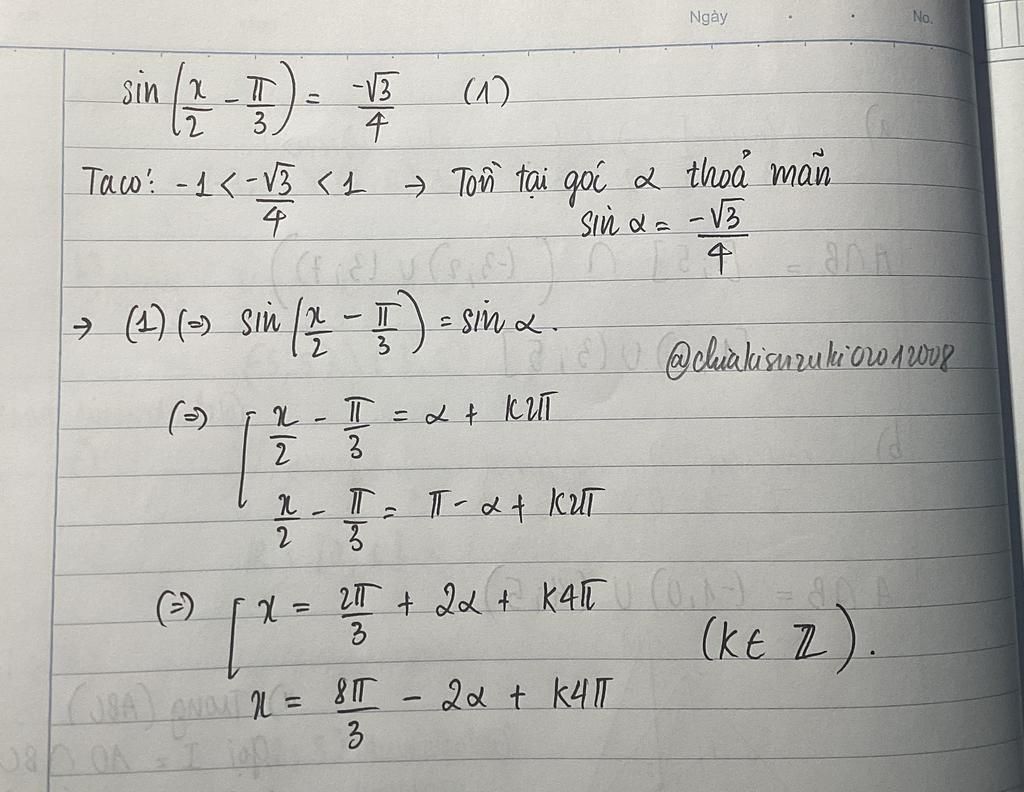 Ngày No.
sin(x/2 - π/3) = -√3/4 (1)
Ta có: -1 < -√3/4 < 1 → Tồn tại góc α thoả mãn
sin α = -√3/4
→ (1) (=) sin(x/2 - π/3) = sin α.
@chiakisuzuki02012008
(=) [ x/2 - π/3 = α + k2π
x/2 - π/3 = π - α + k2π
(=) [ x = 2π/3 + 2α + k4π
(k ∈ ℤ).
x = 8π/3 - 2α + k4π